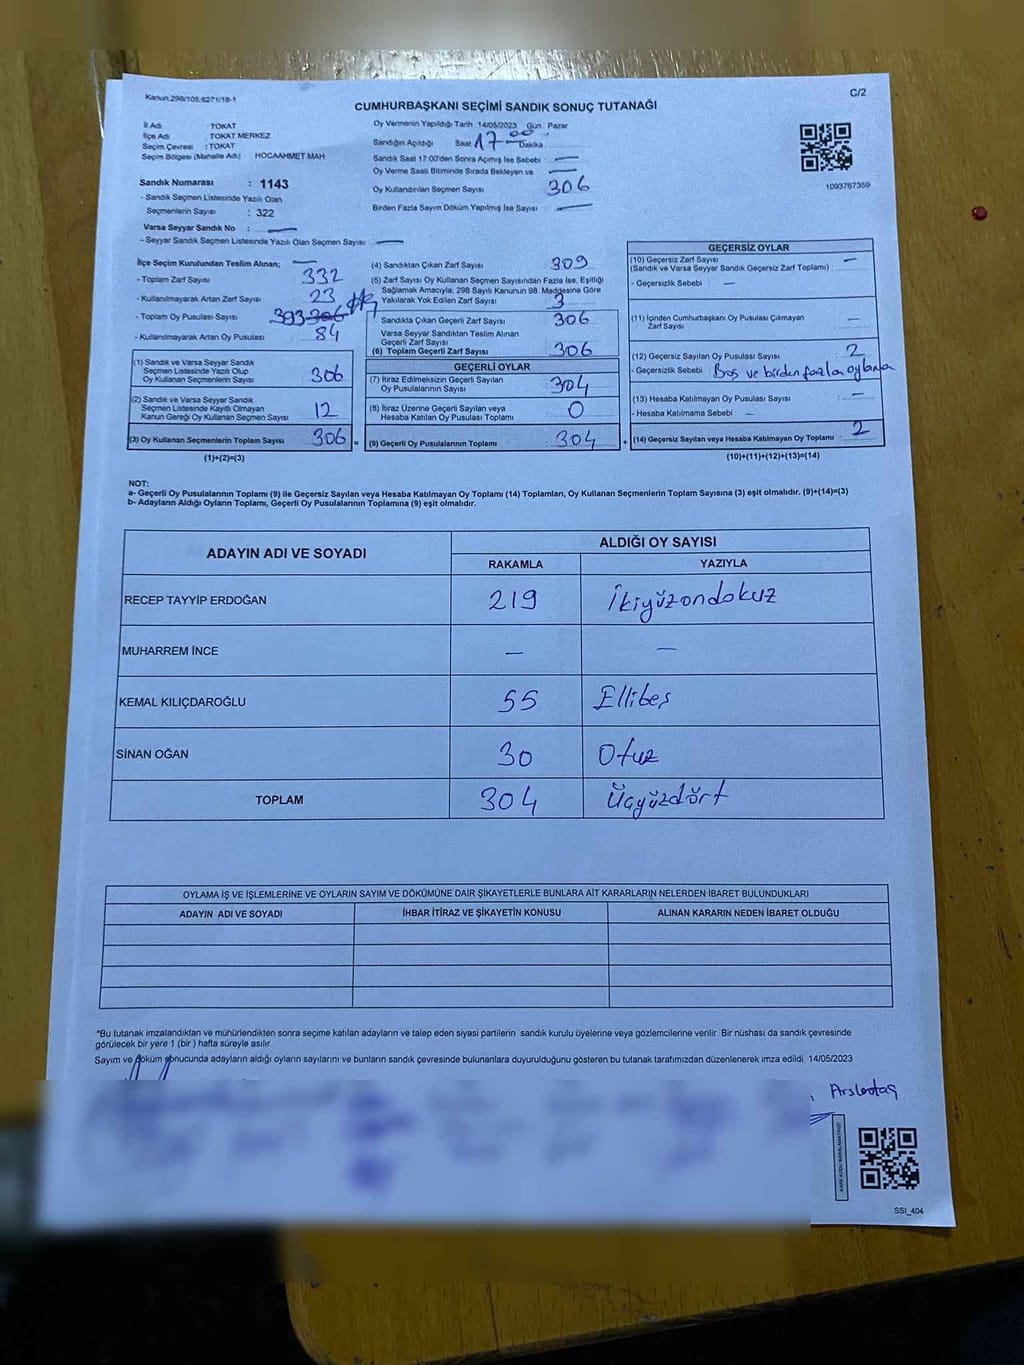 Kanun:298/105;6271/18-1
C/2
CUMHURBAŞKANI SEÇİMİ SANDIK SONUÇ TUTANAĞI
İl Adı TOKAT
İlçe Adı TOKAT MERKEZ
Seçim Çevresi : TOKAT
Seçim Bölgesi (Mahalle Adı) HOCAAHMET MAH
Sandık Numarası : 1143
- Sandık Seçmen Listesinde Yazılı Olan
Seçmenlerin Sayısı : 322
Varsa Seyyar Sandık No : —
- Seyyar Sandık Seçmen Listesinde Yazılı Olan Seçmen Sayısı: —
Oy Vermenin Yapıldığı Tarih 14/05/2023 Gün : Pazar
Sandığın Açıldığı Saat 17 00 Dakika
Sandık Saat 17:00'den Sonra Açımış İse Sebebi : —
Oy Verme Saati Bitiminde Sırada Bekleyen ve —
Oy Kullandırılan Seçmen Sayısı 306
Birden Fazla Sayım Döküm Yapılmış İse Sayısı : —
1093767359
İlçe Seçim Kurulundan Teslim Alınan; —
- Toplam Zarf Sayısı 332
- Kullanılmayarak Artan Zarf Sayısı 23
- Toplam Oy Pusulası Sayısı 393 306
- Kullanılmayarak Artan Oy Pusulası 84
(1) Sandık ve Varsa Seyyar Sandık
Seçmen Listesinde Yazılı Olup
Oy Kullanan Seçmenlerin Sayısı 306
(2) Sandık ve Varsa Seyyar Sandık
Seçmen Listesinde Kayıtlı Olmayan
Kanun Gereği Oy Kullanan Seçmen Sayısı 12
(3) Oy Kullanan Seçmenlerin Toplam Sayısı 306 =
(1)+(2)=(3)
(4) Sandıktan Çıkan Zarf Sayısı 309
(5) Zarf Sayısı Oy Kullanan Seçmen Sayısından Fazla İse, Eşitliği
Sağlamak Amacıyla; 298 Sayılı Kanunun 98. Maddesine Göre
Yakılarak Yok Edilen Zarf Sayısı 3
Sandıkta Çıkan Geçerli Zarf Sayısı : 306
Varsa Seyyar Sandıktan Teslim Alınan
Geçerli Zarf Sayısı
(6) Toplam Geçerli Zarf Sayısı 306
GEÇERLİ OYLAR
(7) İtiraz Edilmeksizin Geçerli Sayılan
Oy Pusulalarının Sayısı 304
(8) İtiraz Üzerine Geçerli Sayılan veya
Hesaba Katılan Oy Pusulası Toplamı 0
(9) Geçerli Oy Pusulalarının Toplamı 304 +
GEÇERSİZ OYLAR
(10) Geçersiz Zarf Sayısı —
(Sandık ve Varsa Seyyar Sandık Geçersiz Zarf Toplamı)
- Geçersizlik Sebebi —
(11) İçinden Cumhurbaşkanı Oy Pusulası Çıkmayan
Zarf Sayısı —
(12) Geçersiz Sayılan Oy Pusulası Sayısı 2
- Geçersizlik Sebebi Boş ve birden fazla oylama
(13) Hesaba Katılmayan Oy Pusulası Sayısı —
- Hesaba Katılmama Sebebi : —
(14) Geçersiz Sayılan veya Hesaba Katılmayan Oy Toplamı : 2
(10)+(11)+(12)+(13)=(14)
NOT:
a- Geçerli Oy Pusulalarının Toplamı (9) ile Geçersiz Sayılan veya Hesaba Katılmayan Oy Toplamı (14) Toplamları, Oy Kullanan Seçmenlerin Toplam Sayısına (3) eşit olmalıdır. (9)+(14)=(3)
b- Adayların Aldığı Oyların Toplamı, Geçerli Oy Pusulalarının Toplamına (9) eşit olmalıdır.
ADAYIN ADI VE SOYADI ALDIĞI OY SAYISI
RAKAMLA YAZIYLA
RECEP TAYYİP ERDOĞAN 219 İkiyüzondokuz
MUHARREM İNCE — —
KEMAL KILIÇDAROĞLU 55 Ellibeş
SİNAN OĞAN 30 Otuz
TOPLAM 304 Üçyüzdört
OYLAMA İŞ VE İŞLEMLERİNE VE OYLARIN SAYIM VE DÖKÜMÜNE DAİR ŞİKAYETLERLE BUNLARA AİT KARARLARIN NELERDEN İBARET BULUNDUKLARI
ADAYIN ADI VE SOYADI İHBAR İTİRAZ VE ŞİKAYETİN KONUSU ALINAN KARARIN NEDEN İBARET OLDUĞU
*Bu tutanak imzalandıktan ve mühürlendikten sonra seçime katılan adayların ve talep eden siyasi partilerin sandık kurulu üyelerine veya gözlemcilerine verilir Bir nüshası da sandık çevresinde
görülecek bir yere 1 (bir ) hafta süreyle asılır.
Sayım ve döküm sonucunda adayların aldığı oyların sayılarını ve bunların sandık çevresinde bulunanlara duyurulduğunu gösteren bu tutanak tarafımızdan düzenlenerek imza edildi 14/05/2023
SSI_404